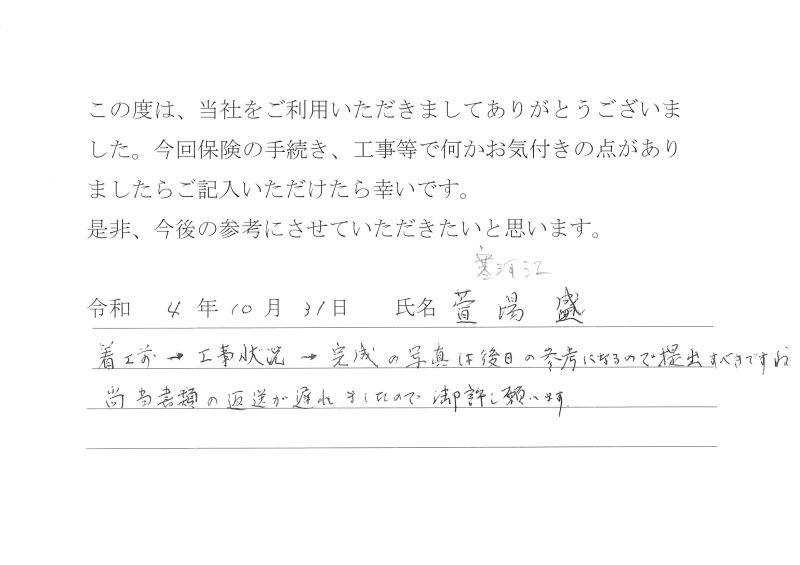 この度は、当社をご利用いただきましてありがとうございま
した。今回保険の手続き、工事等で何かお気付きの点があり
ましたらご記入いただけたら幸いです。
是非、今後の参考にさせていただきたいと思います。
寒河江
令和 4 年 10 月 31 日 氏名 萱場 盛
着工前→工事状況→完成の写真は後日の参考になるので提出すべきですね
尚当書類の返送が遅れましたので御許し願います。